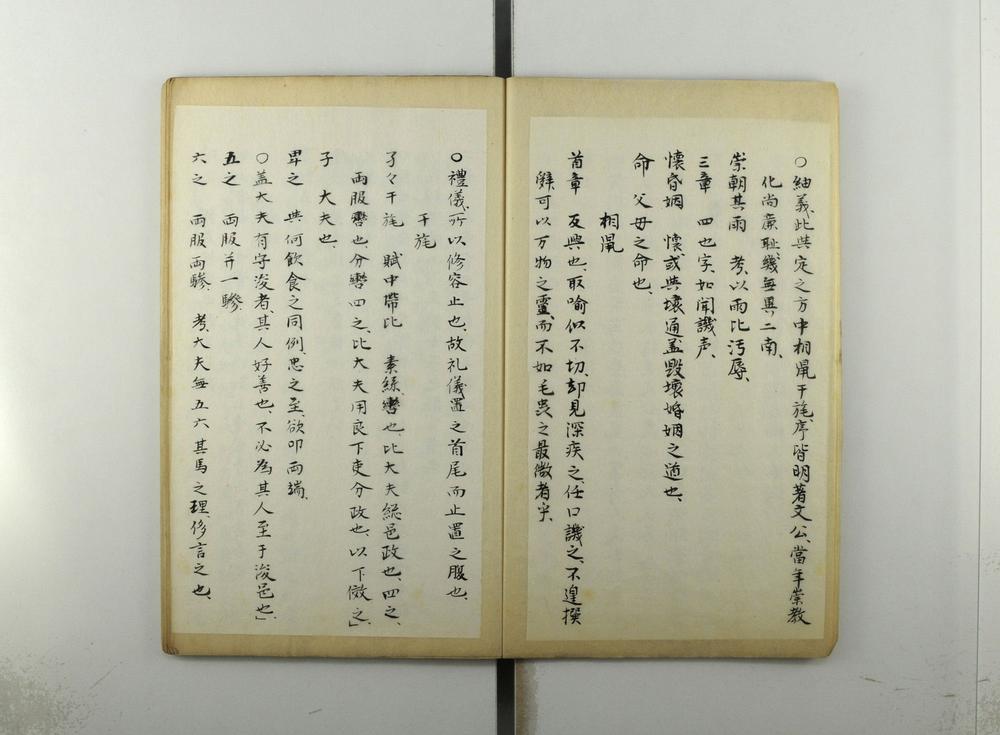 ○紬義、此與定之方中相鼠干旄、序皆明著文公、當年崇教
化尚廉耻、幾無異二南、
崇朝其雨　考、以雨比汚辱、
三章　四也字、如聞譏声、
懷昏姻　懷或與壞通、盖毀壞婚姻之道也、
命　父母之命也、
相鼠
首章　反興也、取喻似不切、却見深疾之、任口譏之、不遑撰
辭、可以万物之靈、而不如毛虫之最微者乎、
○禮儀、所以修容止也、故礼儀置之首尾而止置之腹也、
干旄
孑々干旄　賦中帶比　素絲轡也、比大夫総邑政也、四之、
両服轡也、分轡四之、比大夫用良下吏分政也、以下倣之」
子　大夫也、
畀之　與何飲食之同例、思之至、欲叩両端、
○盖大夫有守浚者、其人好善也、不必為其人至于浚邑也、」
五之　両服并一驂、
六之　両服両驂、　考、大夫無五六其馬之理、侈言之也、